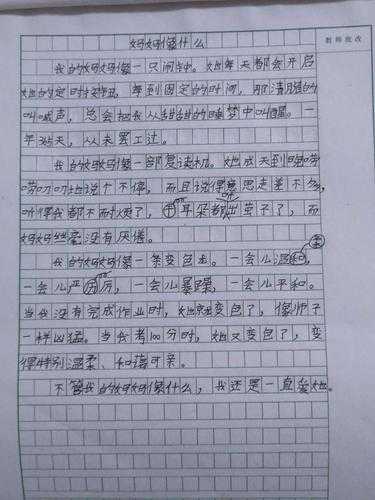 教师批改
妈妈像什么
我的妈妈像一只闹钟。她每天都会开启
她的定时按钮，每到固定的时间，那清脆的
叫喊声，总会把我从甜甜的睡梦中叫醒。一
年365天，从未罢工过。
我的妈妈像一部复读机。她成天到晚唠
唠叨叨地说个不停，而且说得意思走差不多，
听得我都不耐烦了，耳朵都听出茧子了，而
妈妈丝毫没有厌倦。
我的妈妈像一条变色龙。一会儿温和，
一会儿严厉，一会儿暴躁，一会儿平和。
当我没有完成作业时，她就变色了，像狮子
一样凶猛。当我考100分时，她又变色了，变
得特别温柔、和蔼可亲。
不管我的妈妈像什么，我还是一直爱她。